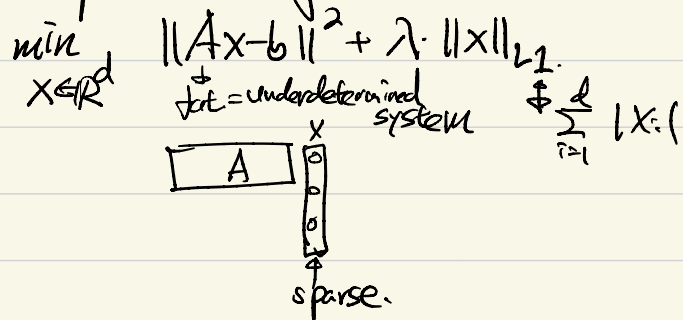 min ||Ax-b||² + λ· ||x||_L1.
x∈ℝ^d
fat = underdetermined system
∑_{i=1}^{d} |x_i|
x
A
sparse.